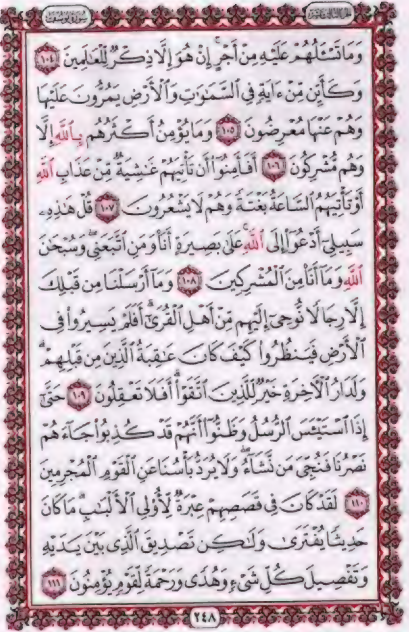 الجزء الثالث عشر سورة يوسف
وَمَا تَسْـَٔلُهُمْ عَلَيْهِ مِنْ أَجْرٍ ۚ إِنْ هُوَ إِلَّا ذِكْرٌ لِّلْعَٰلَمِينَ ١٠٤
وَكَأَيِّن مِّنْ ءَايَةٍ فِى ٱلسَّمَٰوَٰتِ وَٱلْأَرْضِ يَمُرُّونَ عَلَيْهَا
وَهُمْ عَنْهَا مُعْرِضُونَ ١٠٥ وَمَا يُؤْمِنُ أَكْثَرُهُم بِٱللَّهِ إِلَّا
وَهُم مُّشْرِكُونَ ١٠٦ أَفَأَمِنُوٓا۟ أَن تَأْتِيَهُمْ غَٰشِيَةٌ مِّنْ عَذَابِ ٱللَّهِ
أَوْ تَأْتِيَهُمُ ٱلسَّاعَةُ بَغْتَةً وَهُمْ لَا يَشْعُرُونَ ١٠٧ قُلْ هَٰذِهِۦ
سَبِيلِىٓ أَدْعُوٓا۟ إِلَى ٱللَّهِ ۚ عَلَىٰ بَصِيرَةٍ أَنَا۠ وَمَنِ ٱتَّبَعَنِى ۖ وَسُبْحَٰنَ
ٱللَّهِ وَمَآ أَنَا۠ مِنَ ٱلْمُشْرِكِينَ ١٠٨ وَمَآ أَرْسَلْنَا مِن قَبْلِكَ
إِلَّا رِجَالًا نُّوحِىٓ إِلَيْهِم مِّنْ أَهْلِ ٱلْقُرَىٰٓ ۗ أَفَلَمْ يَسِيرُوا۟ فِى
ٱلْأَرْضِ فَيَنظُرُوا۟ كَيْفَ كَانَ عَٰقِبَةُ ٱلَّذِينَ مِن قَبْلِهِمْ ۗ
وَلَدَارُ ٱلْءَاخِرَةِ خَيْرٌ لِّلَّذِينَ ٱتَّقَوْا۟ ۗ أَفَلَا تَعْقِلُونَ ١٠٩ حَتَّىٰٓ
إِذَا ٱسْتَيْـَٔسَ ٱلرُّسُلُ وَظَنُّوٓا۟ أَنَّهُمْ قَدْ كُذِبُوا۟ جَآءَهُمْ
نَصْرُنَا فَنُجِّىَ مَن نَّشَآءُ ۖ وَلَا يُرَدُّ بَأْسُنَا عَنِ ٱلْقَوْمِ ٱلْمُجْرِمِينَ
١١٠ لَقَدْ كَانَ فِى قَصَصِهِمْ عِبْرَةٌ لِّأُو۟لِى ٱلْأَلْبَٰبِ ۗ مَا كَانَ
حَدِيثًا يُفْتَرَىٰ وَلَٰكِن تَصْدِيقَ ٱلَّذِى بَيْنَ يَدَيْهِ
وَتَفْصِيلَ كُلِّ شَىْءٍ وَهُدًى وَرَحْمَةً لِّقَوْمٍ يُؤْمِنُونَ ١١١
٢٤٨